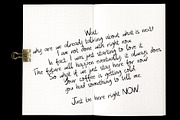 Wait.
why are we already talking about what is next?
I am not done with right now.
In fact, I was just starting to love it.
The future will happen eventually, it always does.
So what if we just stay here for now?
Your coffee is getting cold &
you had something to tell me.
Just be here right NOW.